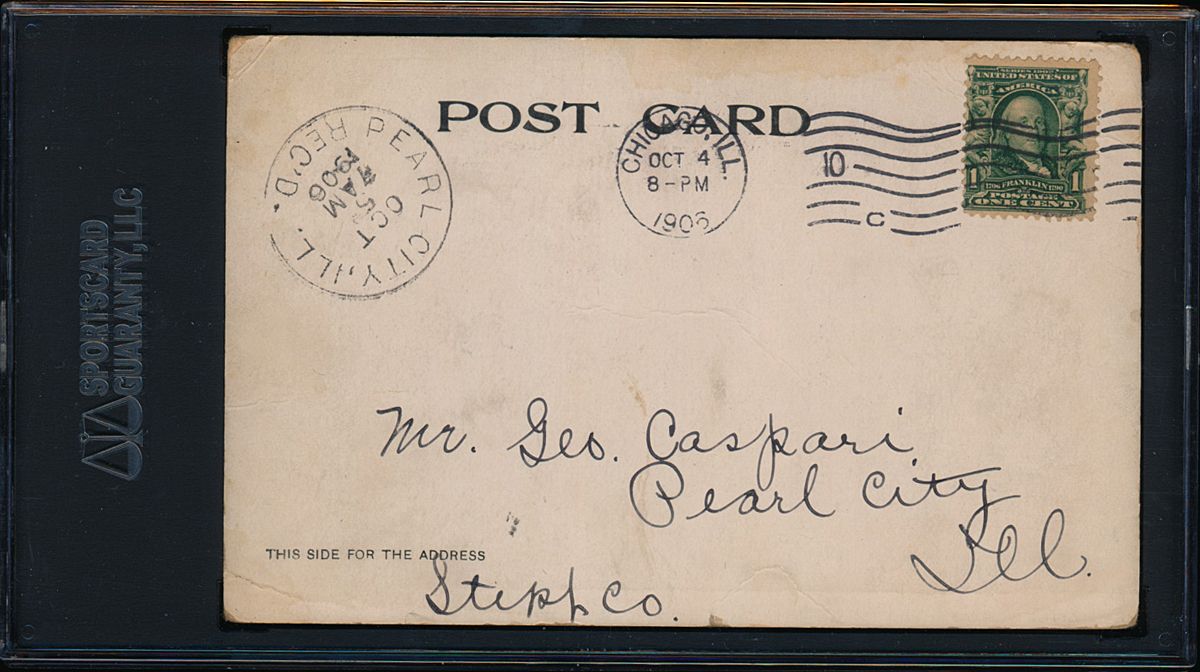 SPORTSCARD
GUARANTY, LLC
POST CARD
PEARL CITY, ILL.
REC'D.
OCT
5
7 AM
1906
CHICAGO, ILL.
OCT 4
8-PM
1906
10
C
SERIES 1902
UNITED STATES OF
AMERICA
1706 FRANKLIN 1790
1 1
POSTAGE
ONE CENT
Mr. Geo. Caspari
Pearl City
Ill.
THIS SIDE FOR THE ADDRESS
Steph Co.